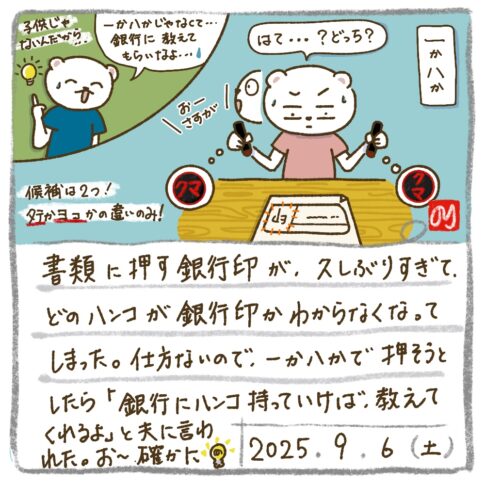 子供じゃ
ないんだから…
一か八かじゃなくて…
銀行に教えて
もらいなよ…
はて…？どっち？
一か八か
おー
さすが
クマ
クマ
候補は2つ！
タテかヨコかの違いのみ！
印
書類に押す銀行印が、久しぶりすぎて、
どのハンコが銀行印かわからなくなって
しまった。仕方ないので、一か八かで押そうと
したら「銀行にハンコ持っていけば、教えて
くれるよ」と夫に言わ
れた。お〜確かに
2025.9.6（土）